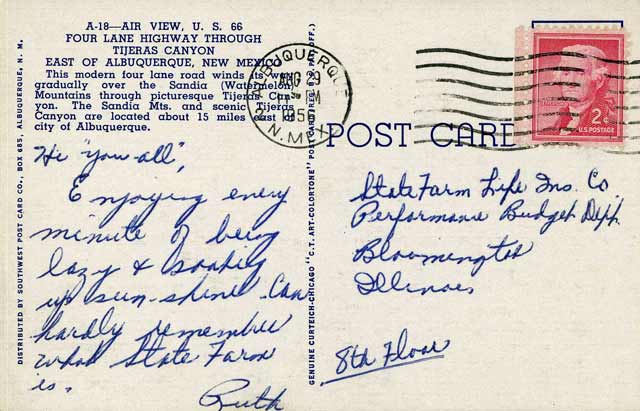 A-18—AIR VIEW, U. S. 66
FOUR LANE HIGHWAY THROUGH
TIJERAS CANYON
EAST OF ALBUQUERQUE, NEW MEXICO
This modern four lane road winds its way
gradually over the Sandia (Watermelon)
Mountains through picturesque Tijeras Can-
yon. The Sandia Mts. and scenic Tijeras
Canyon are located about 15 miles east of
city of Albuquerque.
Hi "you-all",
Enjoying every
minute of being
lazy & soaking
up sun-shine. Can
hardly remember
what State Farm
is.
Ruth
DISTRIBUTED BY SOUTHWEST POST CARD CO., BOX 685, ALBUQUERQUE, N. M.
GENUINE CURTEICH-CHICAGO "C.T. ART-COLORTONE" POST CARD (REG. U.S. PAT. OFF.)
ALBUQUERQUE
AUG 29
PM
1956
N. MEX.
POST CARD
2¢
U.S. POSTAGE
State Farm Life Ins. Co.
Performance Budget Dept.
Bloomington
Illinois
8th Floor